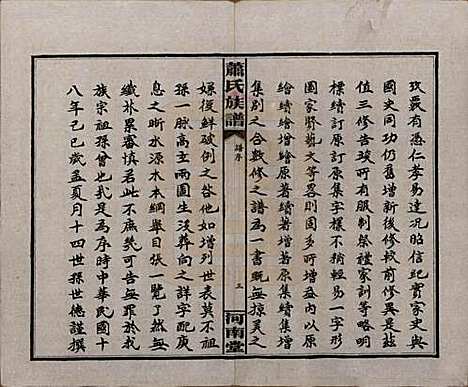 玫覈有憑仁孝易達况昭信紀實家史與
國史同功仍舊增新後修較前修異是茲
值三修告竣所有服制祭禮家訓等略明
標續訂原訂原集字樣不稍輕易一字形
圖家將藝文等畧則圖増內以原
繪續增繪原著續著續集增
集別之合數修之譜為一書既無掠美之
蕭氏族譜
譜序
三
河南堂
嫌後鮮破例之咎他如增列世表莫不祖
孫一脈高立兩圖生沒葬向之詳字庭無
息之眇水源木本綱舉目張一覽了然且
纖芥累審慎若此不庶幾可告無罪於我
族宗祖孫曾也可是為序時中華民國十
八年己巳歲孟夏月十四世孫世德謹撰